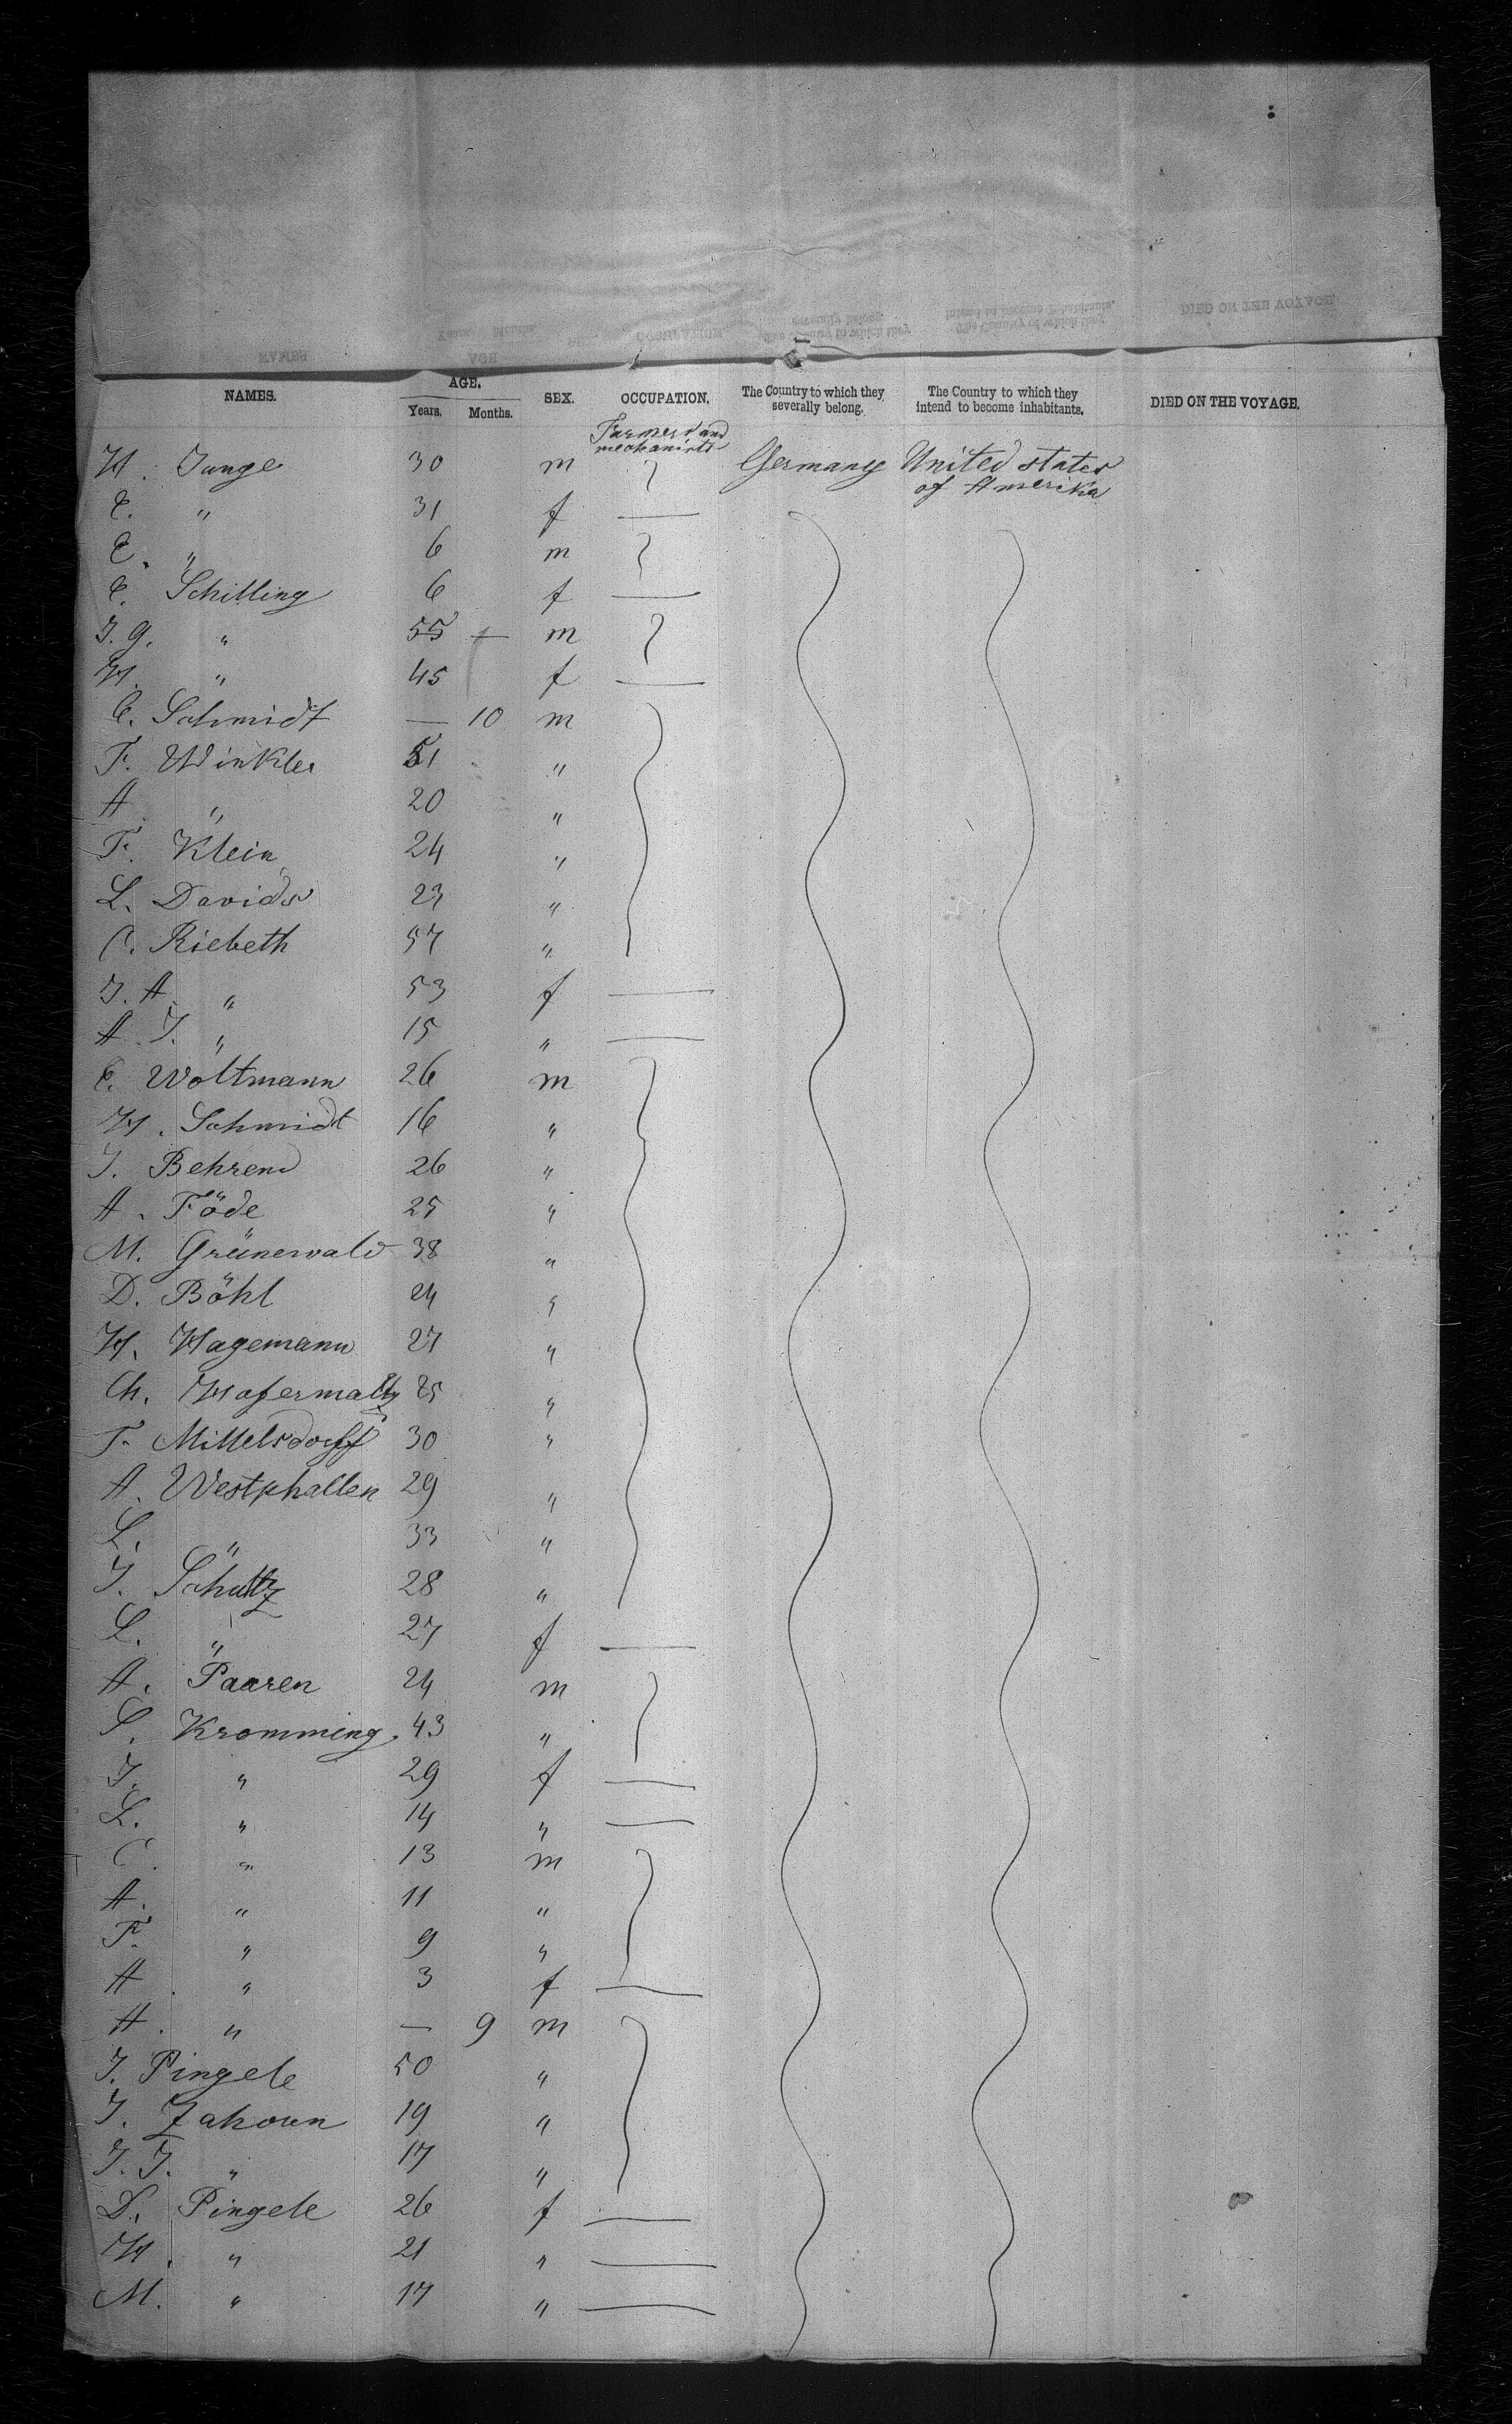 NAMES. AGE. SEX. OCCUPATION. The Country to which they severally belong. The Country to which they intend to become inhabitants. DIED ON THE VOYAGE.
Years. Months.
Farmers and mechanists
H. Junge 30 m Germany United states of Amerika
E. " 31 f —
E. " 6 m
E. Schilling 6 f —
J. G. " 55 m
H. " 45 f —
C. Schmidt — 10 m
F. Winkler 51 "
A. " 20 "
F. Klein 24 "
L. Davids 23 "
C. Riebeth 57 "
J. A. " 53 f —
A. J. " 15 " —
E. Woltmann 26 m
H. Schmidt 16 "
J. Behrend 26 "
A. Föde 25 "
M. Grünewald 38 "
D. Böhl 24 "
H. Hagemann 27 "
Ch. Hafermaltz 25 "
F. Mittelsdorff 30 "
A. Westphallen 29 "
L. " 33 "
J. Schultz 28 "
L. " 27 f —
A. Paaren 24 m
S. Kromming 43 "
J. " 29 f —
L. " 14 " —
C. " 13 m
A. " 11 "
F. " 9 "
A. " 3 f —
A. " — 9 m
J. Pingele 50 "
J. Zahoun 19 "
J. J. " 17 "
D. Pingele 26 f —
H. " 21 " —
M. " 17 " —